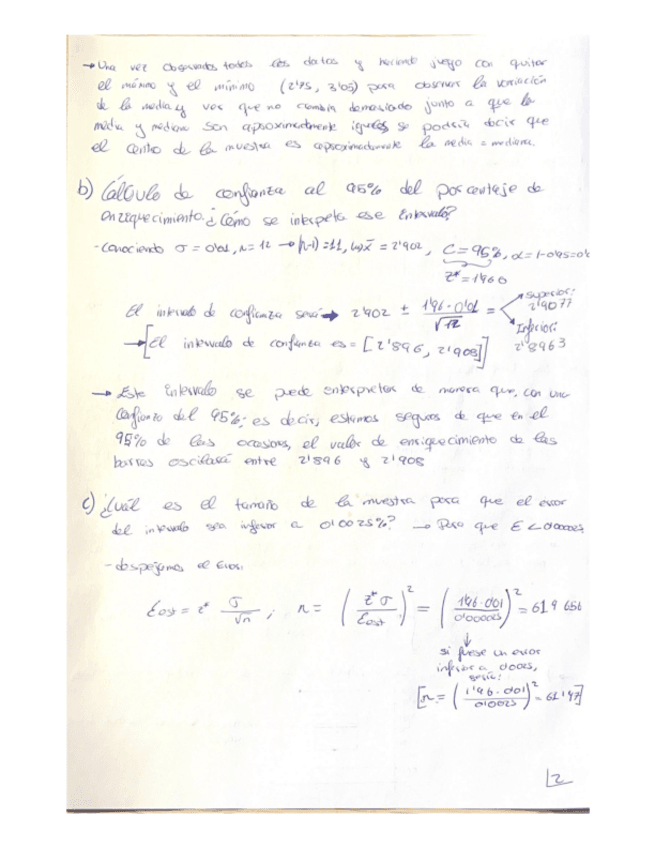 → Una vez observados todos los datos y haciendo juego con quitar
el máximo y el mínimo (2'75, 3'05) para observar la variación
de la media y ver que no cambia demasiado junto a que la
media y mediana son aproximadamente iguales se podría decir que
el centro de la muestra es aproximadamente la media = mediana.
b) Cálculo de confianza al 95% del porcentaje de
enriquecimiento. ¿Cómo se interpreta ese intervalo?
- Conociendo σ = 0'01, n = 12 → (n-1) = 11, x̄ = 2'902, C = 95%, α = 1-0'95 = 0'
z* = 1'960
El intervalo de confianza será → 2'902 ± 1'96 · 0'01 / √12 =
superior: 2'9077
Inferior: 2'8963
→ [El intervalo de confianza es = [2'896, 2'908]]
→ Este intervalo se puede interpretar de manera que, con una
confianza del 95%; es decir, estamos seguros de que en el
95% de las ocasiones, el valor de enriquecimiento de las
barras oscilará entre 2'896 y 2'908
c) ¿Cuál es el tamaño de la muestra para que el error
del intervalo sea inferior a 0'0025%? → Para que E < 0'000025
- despejamos el Error.
Eest = z* σ / √n ; n = (z* σ / Eest)² = (1'96 · 0'01 / 0'000025)² = 619 656
si fuese un error
inferior a 0'0025,
sería:
[n = (1'96 · 0'01 / 0'0025)² = 61'47]
2